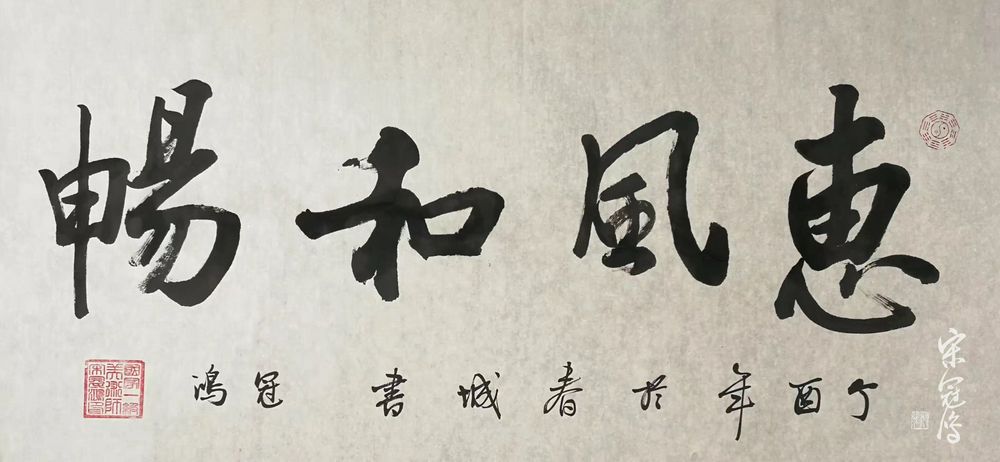 惠風和暢
丁酉年於春城書 冠鴻
國家一級美術師宋冠鴻印
宋冠鴻